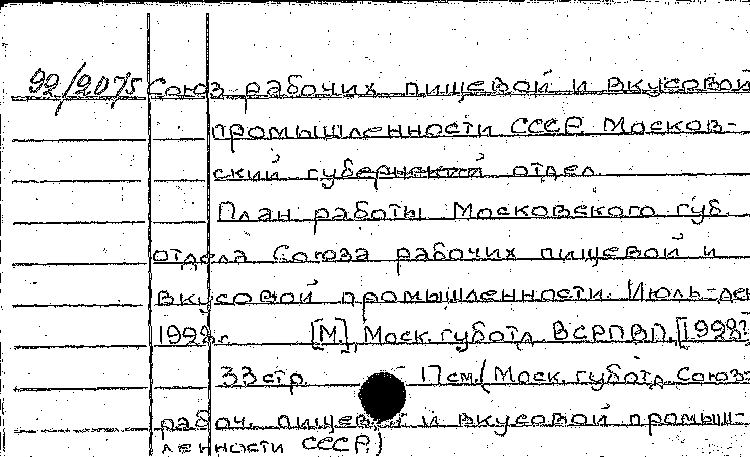 92/2075 Союз рабочих пищевой и вкусовой
промышленности СССР. Москов-
ский губернский отдел.
План работы Московского губ.
отдела Союза рабочих пищевой и
вкусовой промышленности. Июль-дек
1928 г. [М.], Моск. губотд. ВСРПВП, [1928]
33 стр. 17 см. (Моск. губотд. Союз-
рабоч. пищевой и вкусовой промыш-
ленности СССР.)